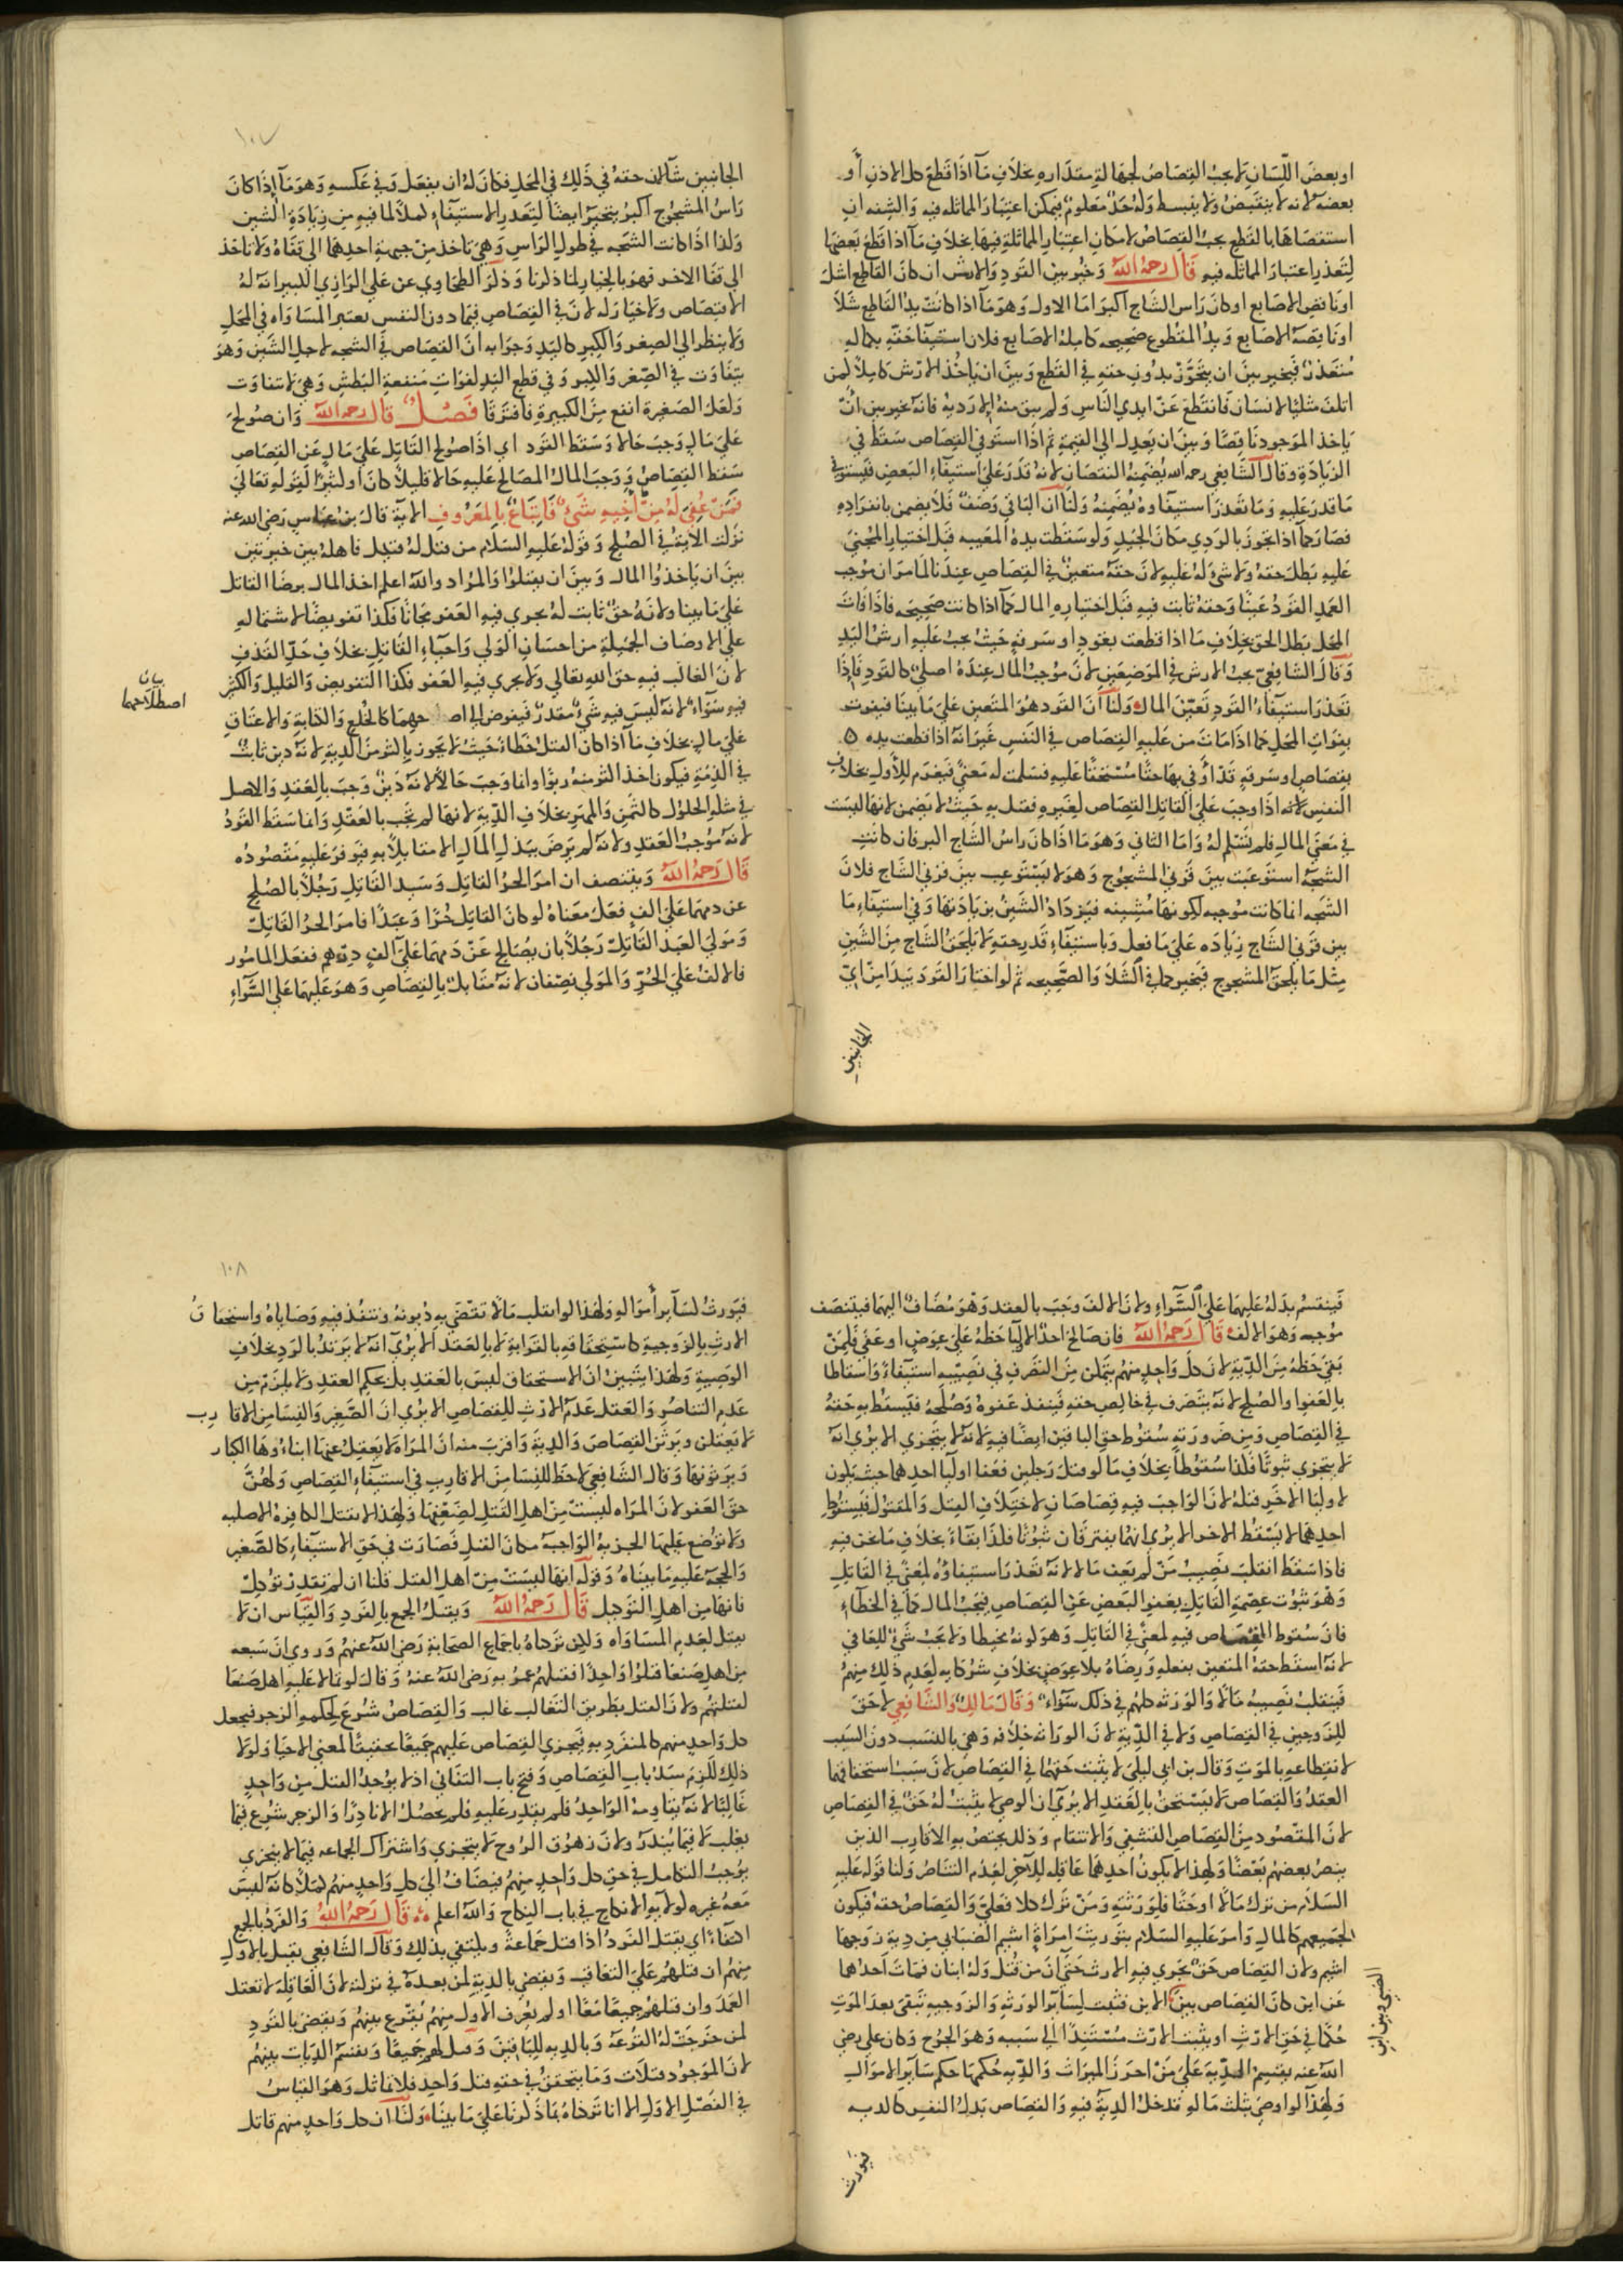 او بعض اللسان لا يجب القصاص لجهالة مقداره بخلاف ما اذا قطع كل الاذن أو
بعضه لانه لا ينقبض ولا ينبسط وله حد معلوم فيمكن اعتبار المماثله فيه والشفه ان
استقصاها بالقطع يجب القصاص لامكان اعتبار المماثلة فيها بخلاف ما اذا قطع بعضها
لتعذر اعتبار المماثله فيه قال رحمه الله وخير بين القود والارش ان كان القاطع اشل
او ناقص الاصابع او كان راس الشاج اكبر اما الاول وهو ما اذا كانت يد القاطع شلا
او ناقصة الاصابع ويد المقطوع صحيحه كاملة الاصابع فلان استيفا حقه بكماله
متعذر فيخير بين ان يتجوز بدون حقه في القطع وبين ان ياخذ الارش كاملا كمن
اتلف مثليا لانسان فانقطع عن ايدي الناس ولم يبق منه الا رديه فانه يخير بين ان
ياخذ الموجود ناقصا وبين ان يعدل الى القيمة ثم اذا استوفى القصاص سقط في
الزيادة وقال الشافعي رحمه الله يضمنه النقصان لانه قدر على استيفاء البعض فيستوفى
ما قدر عليه وما تعذر استيفاوه يضمنه ولنا ان الباقي وصف فلا يضمن بانفراده
فصار كما اذا تجوز بالردي مكان الجيد ولو سقطت يده المعيبه قبل اختيار المجني
عليه بطل حقه ولا شئ له عليه لان حقه متعين في القصاص عندنا لما مر ان موجب
العمد القود عينا وحقه ثابت فيه قبل اختياره المال كما اذا كانت صحيحه فاذا فات
المحل بطل الحق بخلاف ما اذا قطعت بقود او سرقه حيث يجب عليه ارش اليد
وقال الشافعي يجب الارش في الموضعين لان موجب المال عنده اصلي كالقود فاذا
تعذر استيفاء القود تعين المال ولنا ان القود هو المتعين على ما بينا فيفوت
بفوات المحل كما اذا مات من عليه القصاص في النفس غير انه اذا قطعت يده ه
بقصاص او سرقه قد أوفي بها حقا مستحقا عليه فسلمت له معنى فيغرم للأول بخلاف
النفس لانه اذا وجب على القاتل القصاص لغيره فقتل به حيث لا يضمن لانها ليست
في معنى المال فلم تسلم له واما الثاني وهو ما اذا كان راس الشاج اكبر فان كانت
الشجه استوعبت بين قرني المشجوج وهو لا يستوعب بين قرني الشاج فلان
الشجه انما كانت موجبه لكونها مشينه فيزداد الشين بزيادتها وفي استيفاء ما
بين قرني الشاج زياده على ما فعل وباستيفاء قدر حقه لا يلحق الشاج من الشين
مثل ما يلحق المشجوج فيخير كما في الشلا والصحيحه ثم لو اختار القود يبدا من اي
الجانبين
١٠٧
الجانبين شآ لان حقه في ذلك في المحل فكان له ان يفعل وفي عكسه وهو ما اذا كان
راس المشجوج اكبر يتخير ايضا لتعذر الاستيفاء كملا لما فيه من زيادة الشين
وكذا اذا كانت الشجه في طول الراس وهي تاخذ من جبهة احدهما الى قفاه ولا تاخذ
الى قفا الاخر فهو بالخيار لما ذكرنا وذكر الطحاوي عن علي الرازي الكبير انه له
الاقتصاص ولا خيار له لان في القصاص فيما دون النفس يعتبر المساواه في المحل
ولا ينظر الى الصغر والكبر كاليد وجوابه ان القصاص في الشجه لاجل الشين وهو
يتفاوت في الصغر والكبر وفي قطع اليد لفوات منفعة البطش وهي لا تتفاوت
ولعل الصغيرة انفع من الكبيرة فافترقا فصل قال رحمه الله وان صولح
على مال وجب حالا وسقط القود اي اذا صولح القاتل على مال عن القصاص
سقط القصاص ووجب المال المصالح عليه حالا قليلا كان او كثيرا لقوله تعالى
فمن عفي له من أخيه شئ فاتباع بالمعروف الاية قال بن عباس رضي الله عنه
نزلت الاية في الصلح وقوله عليه السلام من قتل له قتيل فاهله بين خيرتين
بين ان ياخذوا المال وبين ان يقتلوا والمراد والله اعلم اخذ المال برضا القاتل
على ما بينا ولانه حق ثابت له يجري فيه العفو مجانا فكذا تعويضا لاشتماله
على الاوصاف الجميلة من احسان الولي واحياء القاتل بخلاف حد القذف
لان الغالب فيه حق الله تعالى ولا يجري فيه العفو فكذا التعويض والقليل والكثير
فيه سوآء لانه ليس فيه شئ مقدر فيفوض الى اصطلاحهما كالخلع والكتابة والاعتاق
بيان
اصطلاحهما
على مال بخلاف ما اذا كان القتل خطاء حيث لا يجوز باكثر من الدية لانه دين ثابت
في الذمة فيكون اخذ اكثر منه ربوا وانما وجب حالا لانه دين وجب بالعقد والاصل
في مثله الحلول كالثمن والمهر بخلاف الدية لانها لم تجب بالعقد وانما سقط القود
لانه موجب العقد ولانه لم يرض ببذل المال الا مقابلا به فيوفر عليه مقصوده
قال رحمه الله ويتنصف ان امر الحر القاتل وسيد القاتل رجلا بالصلح
عن دمهما على الف ففعل معناه لو كان القاتل حرا وعبدا فامر الحر القاتل
ومولى العبد القاتل رجلا بان يصالح عن دمهما على الف درهم ففعل المامور
فالالف على الحر والمولى نصفان لانه مقابل بالقصاص وهو عليهما على السواء
فينقسم بدله عليهما على السواء ولان الالف وجب بالعقد وهو مضاف اليهما فيتنصف
موجبه وهو الالف قال رحمه الله فان صالح احد الاوليا حظه على عوض او عفي فلمن
بقي حظه من الدية لان كل واحد منهم يتمكن من التصرف في نصيبه استيفاء واسقاطا
بالعفو والصلح لانه يتصرف في خالص حقه فينفذ عفوه وصلحه فيسقط به حقه
في القصاص ومن ضرورته سقوط حق الباقين ايضا فيه لانه لا يتجزي الا يرى انه
لا يتجزي ثبوتا فلذا سقوطا بخلاف ما لو قتل رجلين فعفا اوليا احدهما حيث يكون
لاوليا الاخر قتله لان الواجب فيه قصاصان لاختلاف القتل والمقتول فبسقوط
احدهما لا يسقط الاخر الا يرى انهما يفترقان ثبوتا فلذا بقاء بخلاف ما نحن فيه
فاذا سقط انقلب نصيب من لم يعف مالا لانه تعذر استيفاوه لمعنى في القاتل
وهو ثبوت عصمة القاتل بعفو البعض عن القصاص فيجب المال كما في الخطآء
فان سقوط القصاص فيه لمعنى في القاتل وهو كونه مخيطا ولا يجب شئ للعافي
لانه اسقط حقه المتعين بفعله ورضاه بلا عوض بخلاف شركايه لعدم ذلك منهم
فينقلب نصيبه مالا والورثه كلهم في ذلك سوآء وقال مالك والشافعي لا حق
للزوجين في القصاص ولا في الدية لان الوراثه خلافه وهي بالنسب دون السبب
لانقطاعه بالموت وقال بن ابي ليلى لا يثبت حقهما في القصاص لان سبب استحقاقهما
العقد والقصاص لا يستحق بالعقد الا يرى ان الوصي لا يثبت له حق في القصاص
لان المقصود من القصاص التشفي والانتقام وذلك يختص به الاقارب الذين
ينصر بعضهم بعضا ولهذا لا يكون احدهما عاقله للآخر لعدم التناصر ولنا قوله عليه
السلام من ترك مالا او حقا فلورثته ومن ترك كلا فعلي والقصاص حقه فيكون
لجميعهم كالمال وامر عليه السلام بتوريث امراة اشيم الضبابي من دية زوجها
اشيم ولان القصاص حق يجري فيه الارث حتى ان من قتل وله ابنان فمات احدهما
عن ابن كان القصاص بين الابن فثبت لسآير الورثه والزوجيه تبقى بعد الموت
حكما في حق الارث او يثبت الارث مستندا الى سببه وهو الجرح وكان علي رضي
الله عنه يقسم الدية على من احرز الميراث والديه حكمها حكم سآير الاموال
ولهذا لو اوصى بثلث ماله تدخل الدية فيه والقصاص بدل النفس كالديه
فيورث
١٠٨
فيورث كسآير أمواله ولهذا لو انقلب مالا تقضى به ديونه وتنفذ فيه وصاياه واستحقاق
الارث بالزوجية كاستحقاقه بالقرابة لا بالعقد الا يرى انه لا يرتد بالرد بخلاف
الوصية ولهذا يتبين ان الاستحقاق ليس بالعقد بل بحكم العقد ولا يلزم من
عدم التناصر والعقل عدم الارث للقصاص الا يرى ان الصغير والنسا من الاقارب
لا يعقلن ويرثن القصاص والدية واقرب منه ان المراة لا يعقل عنها ابناؤها الكبار
ويرثونها وقال الشافعي لا حظ للنسا من الاقارب في استيفاء القصاص ولهن
حق العفو لان المراه ليست من اهل القتل لضعفها ولهذا لا تقتل الكافرة الاصليه
ولا توضع عليها الجزية الواجبة مكان القتل فصارت في حق الاستيفاء كالصغير
والحجه عليه ما بيناه وقوله انها ليست من اهل القتل قلنا ان لم تقدر توكل
فانها من اهل التوكيل قال رحمه الله ويقتل الجمع بالفرد والقياس ان لا
يقتل لعدم المساواه ولكن تركناه باجماع الصحابة رضي الله عنهم وروي ان سبعه
من اهل صنعا قتلوا واحدا فقتلهم عمر به رضي الله عنه وقال لو تمالا عليه اهل صنعا
لقتلتهم ولان القتل بطريق التغالب غالب والقصاص شرع لحكمه الزجر فيجعل
كل واحد منهم كالمنفرد به فيجري القصاص عليهم جميعا تحقيقا لمعنى الاحيا ولولا
ذلك للزم سد باب القصاص وفتح باب التفاني اذ لا يوجد القتل من واحد
غالبا لانه يقاومه الواحد فلم يقدر عليه فلم يحصل الا نادرا والزجر شرع فيما
يغلب لا فيما يندر ولان زهوق الروح لا يتجزي واشتراك الجماعه فيما لا يتجزي
يوجب التكامل في حق كل واحد منهم فيضاف الى كل واحد منهم كملا كانه ليس
معه غيره كولاية الانكاح في باب النكاح والله اعلم قال رحمه الله والفرد بالجمع
اكتفاء اي يقتل الفرد اذا قتل جماعة ويكتفى بذلك وقال الشافعي يقتل بالاول
منهم ان قتلهم على التعاقب ويقضي بالدية لمن بعده في تركته لان العاقله لا تعقل
العمد وان قتلهم جميعا معا او لم يعرف الاول منهم يقرع بينهم ويقضى بالقود
لمن خرجت له القرعة وبالديه للباقين وقيل لهم جميعا وتقسم الديات بينهم
لان الموجود قتلات وما يتحقق في حقه قتل واحد فلا تماثل وهو القياس
في الفصل الاول الا انا تركناه بما ذكرنا على ما بينا ولنا ان كل واحد منهم قاتل